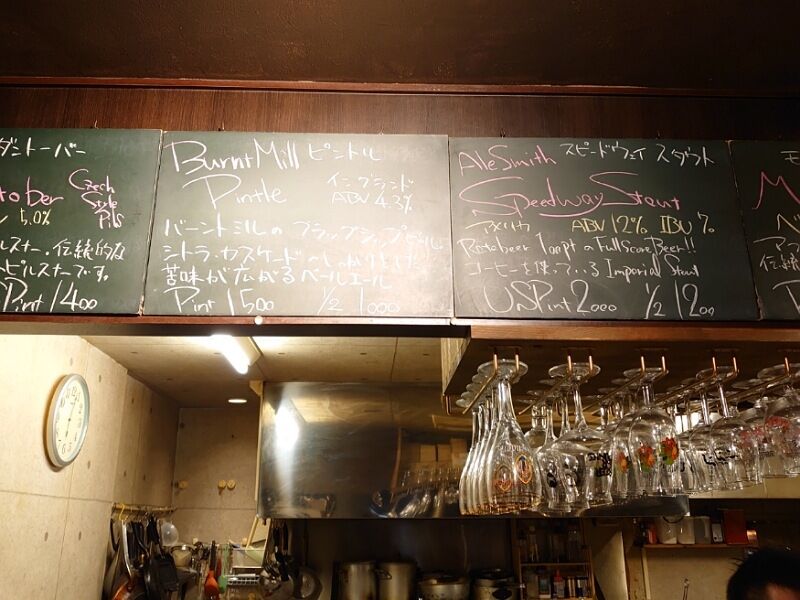 ダントーバー
tober
Czech
Style
Pils
5.0%
ルスナー。伝統的な
ピルスナーです。
Pint 1400
Burnt Mill ピントル
Pintle
イングランド
ABV 4.3%
バーントミルのフラッグシップビール
シトラ・カスケードのしっかりとした
苦味が広がるペールエール
Pint 1500 1/2 1000
AleSmith スピードウェイ スタウト
Speedway Stout
アメリカ ABV 12% IBU 70
Ratebeer 100pt a Full Score Beer!!
コーヒーを使っている Imperial Stout
USPint 2000 1/2 1200
モ
M
ベ
アフ
伝統